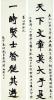 天下文章莫大乎是
一時賢士皆從其游